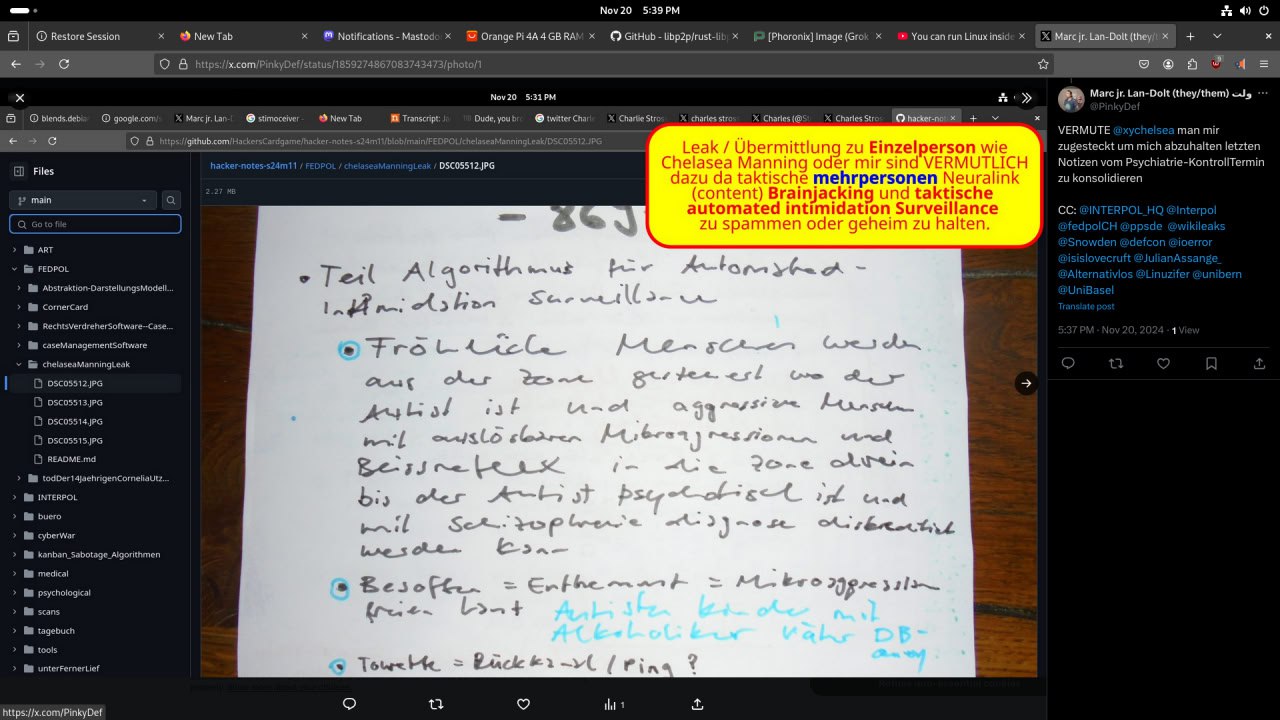 Nov 20 5:39 PM
Restore Session
New Tab
Notifications - Mastodo
Orange Pi 4A 4 GB RAM
GitHub - libp2p/rust-lib
[Phoronix] Image (Grok
You can run Linux inside
Marc jr. Lan-Dolt (they/t
https://x.com/PinkyDef/status/1859274867083743473/photo/1
Nov 20 5:31 PM
blends.debia
google.com/
Marc jr. Lan-D
stimoceiver -
New Tab
Transcript: Ja
Dude, you bro
twitter Charle
Charlie Stros
charles stros
Charles (@St
Charles Stros
hacker-not
https://github.com/HackersCardgame/hacker-notes-s24m11/blob/main/FEDPOL/chelaseaManningLeak/DSC05512.JPG
Files
main
Go to file
ART
FEDPOL
Abstraktion-DarstellungsModell...
CornerCard
RechtsVerdreherSoftware--Case...
caseManagementSoftware
chelaseaManningLeak
DSC05512.JPG
DSC05513.JPG
DSC05514.JPG
DSC05515.JPG
README.md
todDer14JaehrigenCorneliaUtz...
INTERPOL
buero
cyberWar
kanban_Sabotage_Algorithmen
medical
psychological
scans
tagebuch
tools
unterFernerLief
hacker-notes-s24m11 / FEDPOL / chelaseaManningLeak / DSC05512.JPG
2.27 MB
Leak / Übermittlung zu Einzelperson wie
Chelasea Manning oder mir sind VERMUTLICH
dazu da taktische mehrpersonen Neuralink
(content) Brainjacking und taktische
automated intimidation Surveillance
zu spammen oder geheim zu halten.
Teil Algorithmus für Automated-
Intimidation Surveillance
Fröhliche Menschen werden
aus der Zone gesteuert wo der
Autist ist und aggressive Menschen
mit auslösbaren Mikroagressionen und
Beissreflex in die Zone
bis der Autist psychotisch ist und
mit Schizophrenie diagnose diskreditiert
werden kann
Besoffen = Enthemmt = Mikroaggression
freien Lauf Autisten kinder mit
Alkoholiker Vater DB-
Tourette = Rückkanal / Ping ?
Marc jr. Lan-Dolt (they/them) ولت
@PinkyDef
VERMUTE @xychelsea man mir
zugesteckt um mich abzuhalten letzten
Notizen vom Psychiatrie-KontrollTermin
zu konsolidieren
CC: @INTERPOL_HQ @Interpol
@fedpolCH @ppsde @wikileaks
@Snowden @defcon @ioerror
@isislovecruft @JulianAssange_
@Alternativlos @Linuzifer @unibern
@UniBasel
Translate post
5:37 PM · Nov 20, 2024 · 1 View
1
https://x.com/PinkyDef